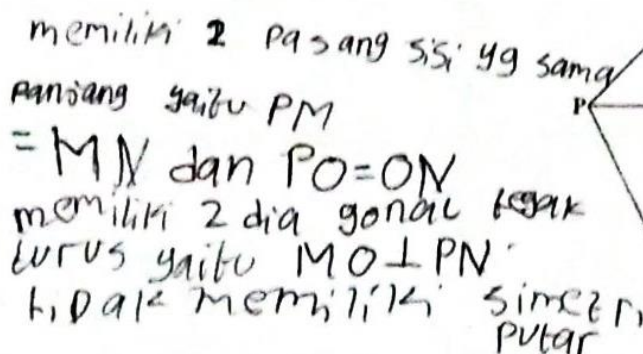 memiliki 2 pasang sisi yg sama
panjang yaitu PM
= MN dan PO=ON
memiliki 2 diagonal tegak
lurus yaitu MO⊥PN.
tidak memiliki simetri
putar
P